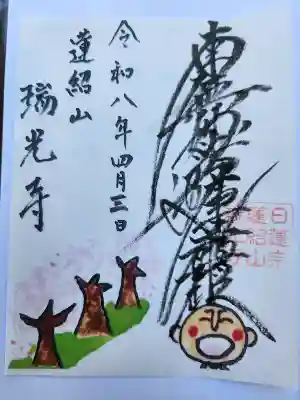 南無妙法蓮華経
令和八年四月三日
蓮紹山
瑞光寺
日蓮宗
蓮紹山